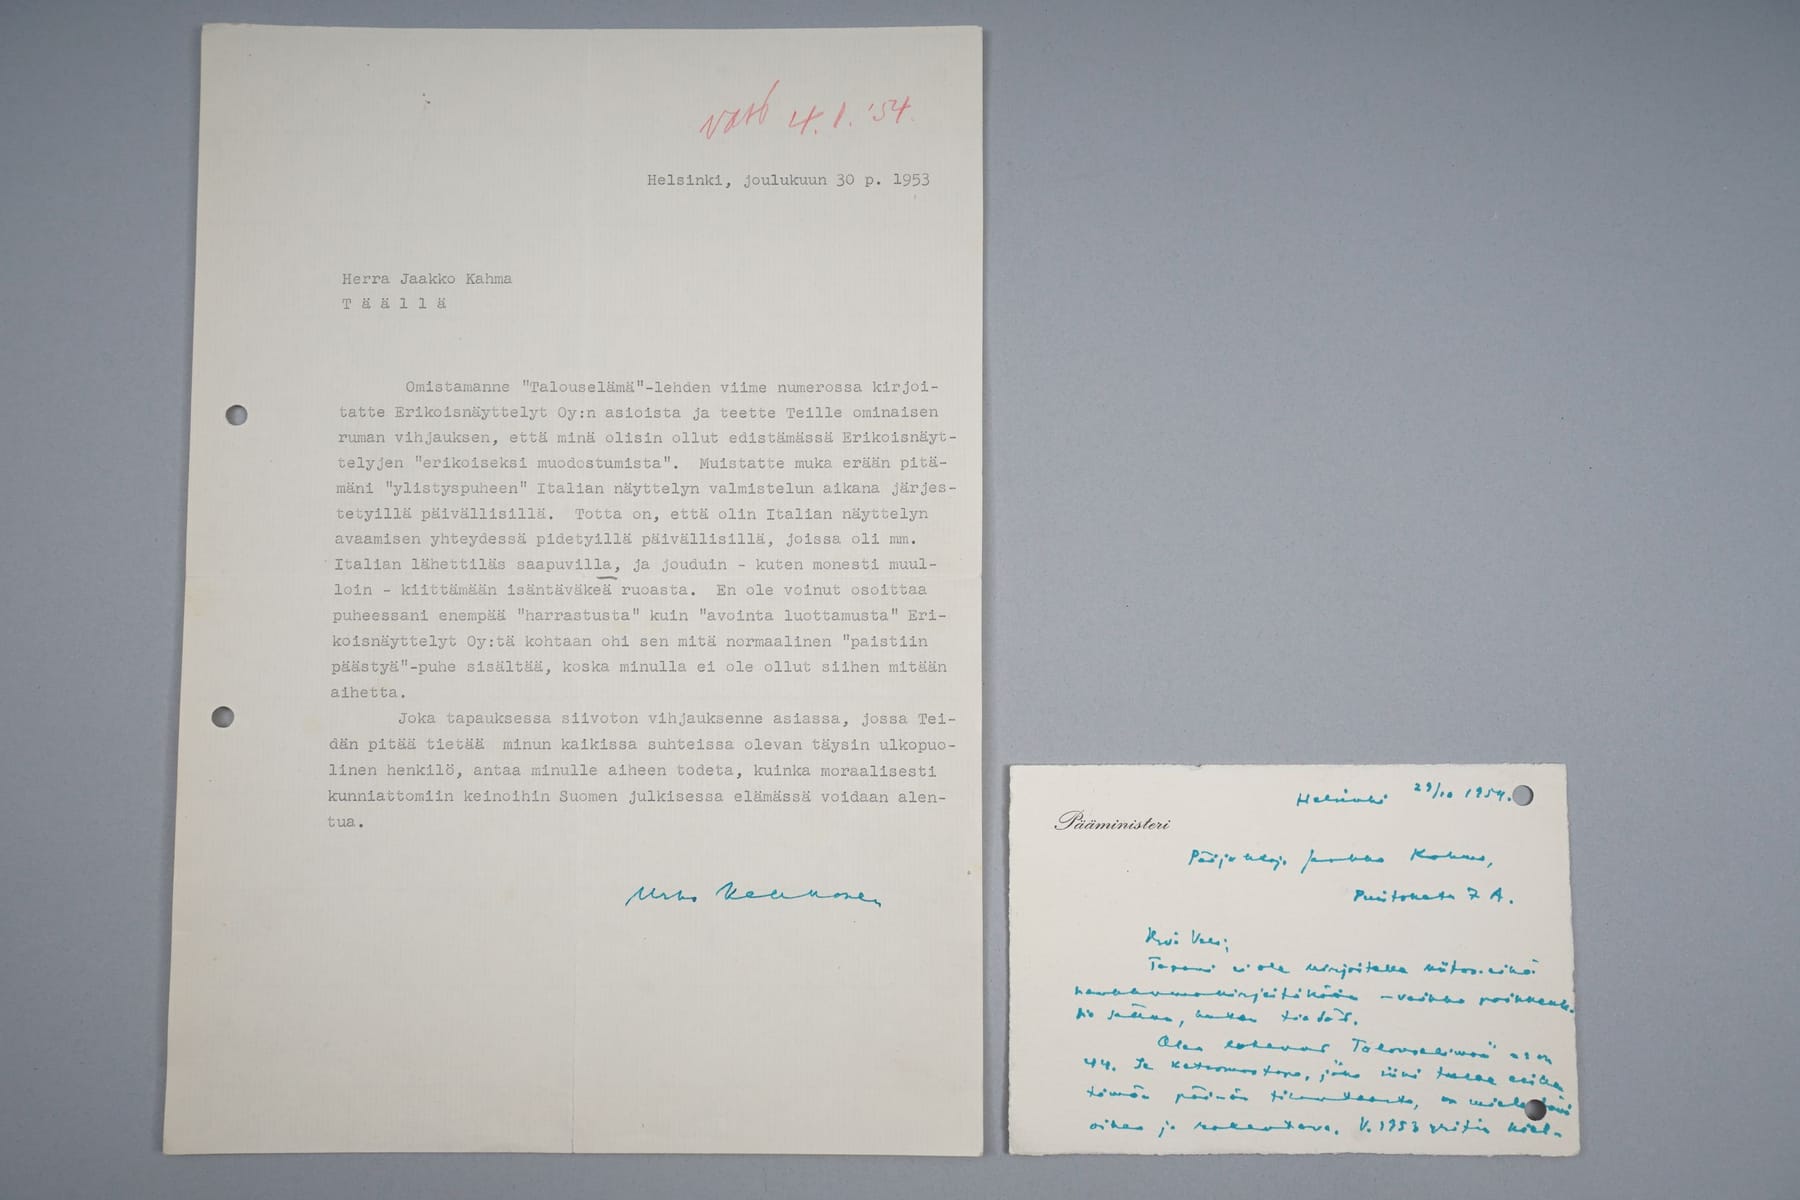 vast 4.1.'54.
Helsinki, joulukuun 30 p. 1953
Herra Jaakko Kahma
T ä ä l l ä
Omistamanne "Talouselämä"-lehden viime numerossa kirjoi-
tatte Erikoisnäyttelyt Oy:n asioista ja teette Teille ominaisen
ruman vihjauksen, että minä olisin ollut edistämässä Erikoisnäyt-
telyjen "erikoiseksi muodostumista". Muistatte muka erään pitä-
mäni "ylistyspuheen" Italian näyttelyn valmistelun aikana järjes-
tetyillä päivällisillä. Totta on, että olin Italian näyttelyn
avaamisen yhteydessä pidetyillä päivällisillä, joissa oli mm.
Italian lähettiläs saapuvilla, ja jouduin - kuten monesti muul-
loin - kiittämään isäntäväkeä ruoasta. En ole voinut osoittaa
puheessani enempää "harrastusta" kuin "avointa luottamusta" Eri-
koisnäyttelyt Oy:tä kohtaan ohi sen mitä normaalinen "paistiin
päästyä"-puhe sisältää, koska minulla ei ole ollut siihen mitään
aihetta.
Joka tapauksessa siivoton vihjauksenne asiassa, jossa Tei-
dän pitää tietää minun kaikissa suhteissa olevan täysin ulkopuo-
linen henkilö, antaa minulle aiheen todeta, kuinka moraalisesti
kunniattomiin keinoihin Suomen julkisessa elämässä voidaan alen-
tua.
Urho Kekkonen
Helsinki 29/10 1954.
Pääministeri
Pääjohtaja Jaakko Kahma,
Puistokatu 7 A.
Hyvä Veli;
Tapani ei ole kirjoitella kiitos- eikä
haukkumakirjeitäkään - vaikka poikkeuk-
sia sattuu, kuten tiedät.
Olen lukenut "Talouselämän" n:on
44. Se katsomustapa, joka siinä tulee esille
tämän päivän tilanteesta, on mielestäni
oikea ja rakentava. V. 1953 yritin kiel-